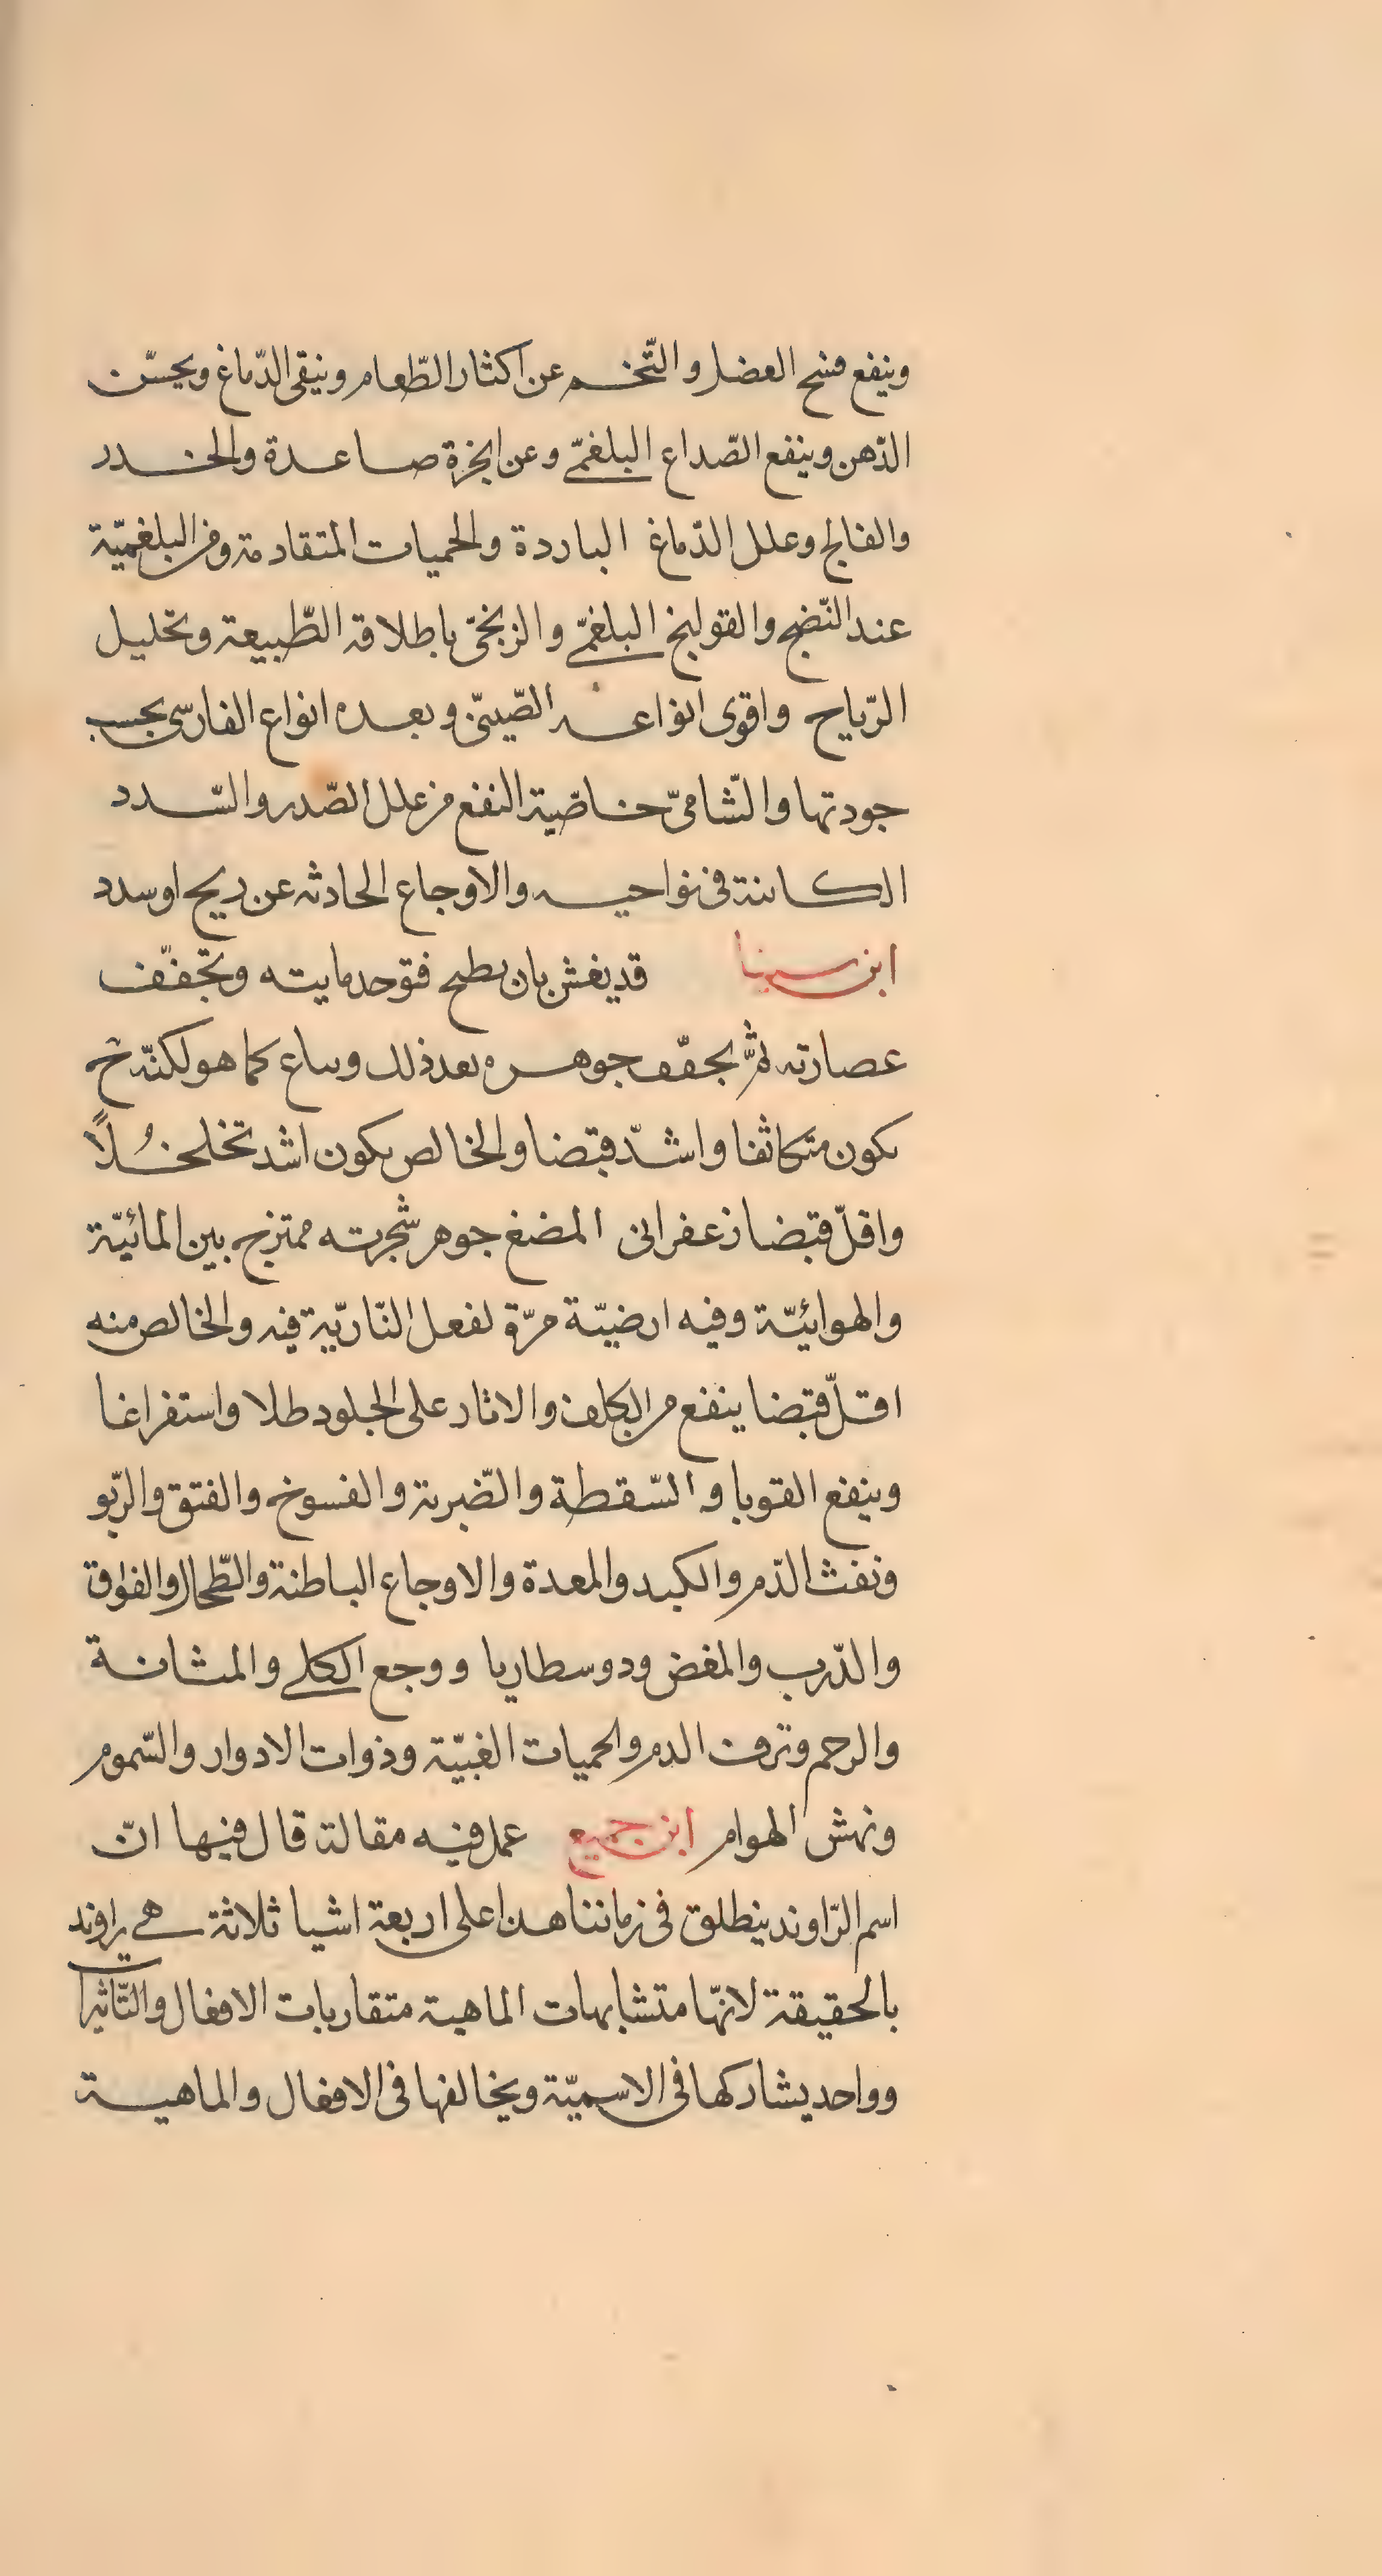 وينفع فسخ العضل والتّخم عن اكثار الطّعام وينقى الدّماغ ويحسّن
الذّهن وينفع الصّداع البلغمّى وعن ابخرة صاعدة والخدر
والفالج وعلل الدّماغ الباردة والحميات المتقادمة وفى البلغميّة
عند النّضج والقولنج البلغمّى والريحىّ باطلاقه الطّبيعة وتحليل
الرّياح واقوى انواعه الصّينىّ وبعده انواع الفارسى بحسب
جودتها والشّامىّ خاصّية النفع من علل الصّدر والسّدد
الكائنة فى نواحيه والاوجاع الحادثه عن ريح او سدد
ابن سينا قد يغش بان يطبخ فتوخد مايته وتجفّف
عصارته ثمّ يجفّف جوهره بعد ذلك ويباع كما هو لكنّه ح
يكون متكاثفا واشدّ قبضا والخالص يكون اشد تخلخُلاً
واقلّ قبضا زعفرانى المضغ جوهر شجرته ممتزج بين المائيّة
والهوائيّة وفيه ارضيّة مرّة لفعل النّاريّة فيه والخالص منه
اقلّ قبضا ينفع من الكلف والاثار على الجلود طلا واستفراغا
وينفع القوبا والسّقطة والضّربة والفسوخ والفتق والرّبو
ونفث الدّم والكبد والمعدة والاوجاع الباطنة والطّحال والفواق
والذّرب والمغص ودوسطاريا ووجع الكلى والمثانة
والرحم ونزف الدم والحميات الغبيّة وذوات الادوار والسّموم
ونهش الهوام ابن جميع عمل فيه مقالة قال فيها انّ
اسم الرّاوند ينطلق فى زماننا هذا على اربعة اشيا ثلاثة هى راوند
بالحقيقة لانّها متشابهات الماهية متقاربات الافعال والتّاثيرا
وواحد يشاركها فى الاسميّة ويخالفها فى الافعال والماهية